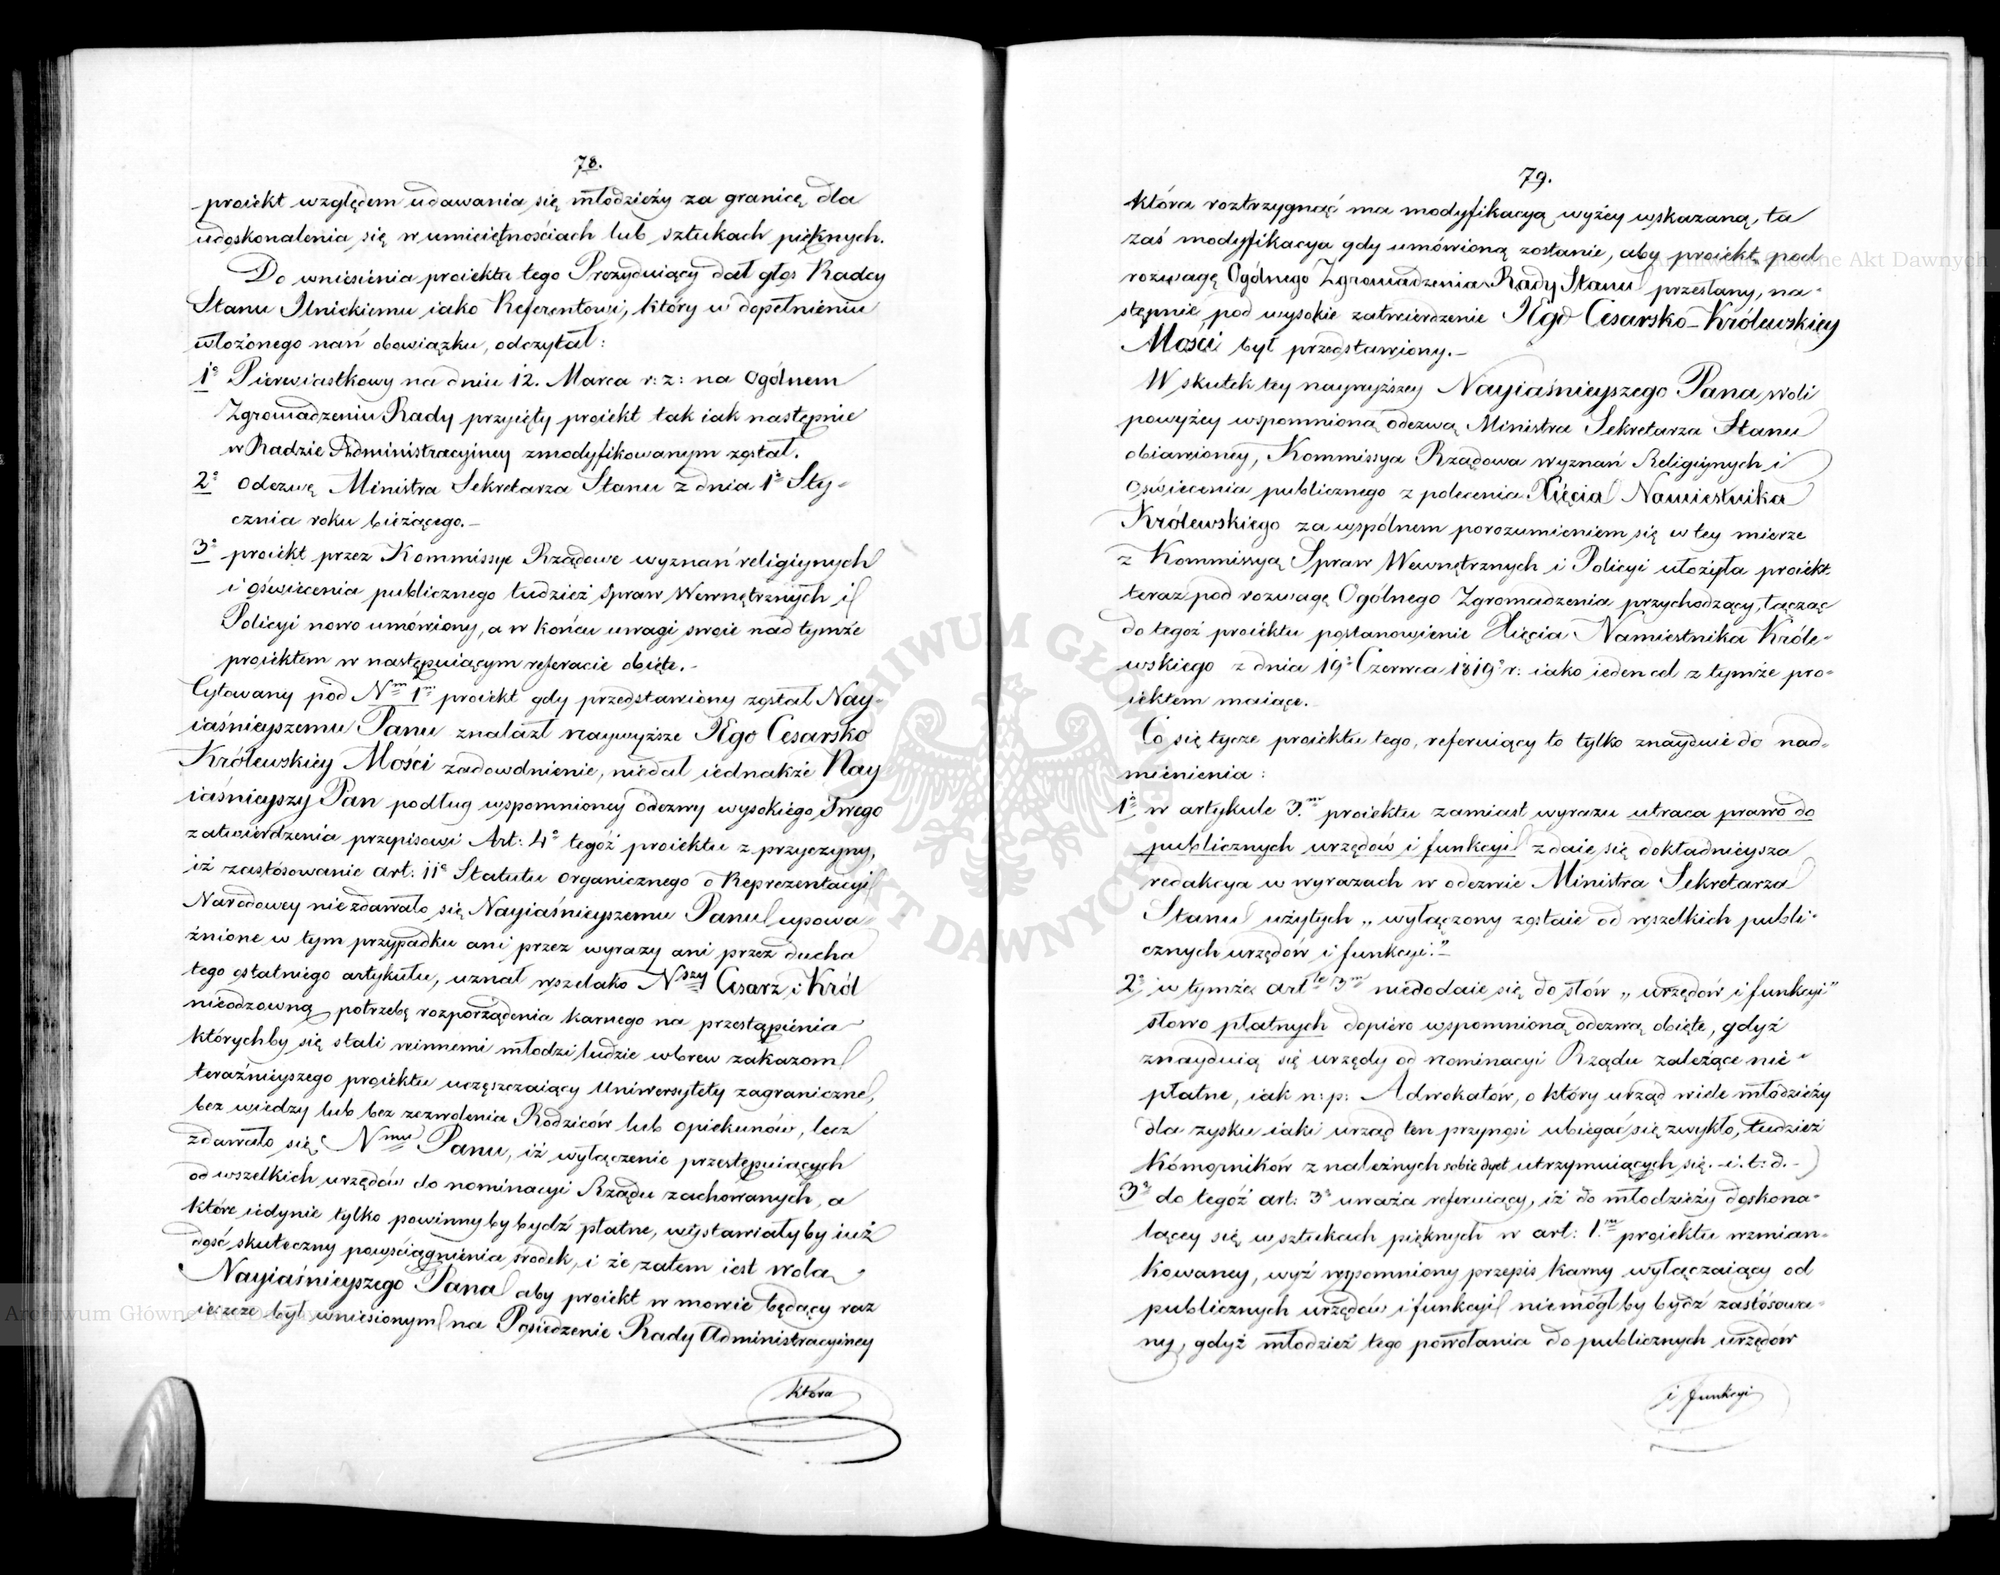 78.
proiekt względem udawania się młodzieży za granicę dla
udoskonalenia się w umieiętnościach lub sztukach pięknych.
Do wniesienia proiektu tego Prezyduiący dał głos Radcy
Stanu Ilnickiemu iako Referentowi, który w dopełnieniu
włożonego nań obowiązku, odczytał:
1° Pierwiastkowy na dniu 12. Marca r: z: na Ogólnem
Zgromadzeniu Rady przyięty proiekt tak iak następnie
w Radzie Administracyiney zmodyfikowanym został.
2° Odezwę Ministra Sekretarza Stanu z dnia 1° Sty-
cznia roku bieżącego.-
3° proiekt przez Kommissye Rządowe wyznań religiynych
i oświecenia publicznego tudzież Spraw Wewnętrznych i
Policyi nowo umówiony, a w końcu uwagi swoie nad tymże
proiektem w następuiącym referacie obięte.-
Cytowany pod Nm 1m proiekt gdy przedstawiony został Nay-
iaśnieyszemu Panu znalazł naywyższe JEgo Cesarsko
Królewskiey Mości zadowolnienie, niedał iednakże Nay
iaśnieyszy Pan podług wspomnioney odezwy wysokiego Swego
zatwierdzenia przepisowi Art: 4° tegóż proiektu z przyczyny,
iż zastósowanie art: 11° Statutu Organicznego o Reprezentacyi
Narodowey niezdawało się Nayiaśnieyszemu Panu upowa-
żnione w tym przypadku ani przez wyrazy ani przez ducha
tego ostatniego artykułu, uznał wszelako Nszy Cesarz i Król
nieodzowną potrzebę rozporządzenia karnego na przestąpienia
którychby się stali winnemi młodzi ludzie wbrew zakazom
teraźnieyszego proiektu uczęszczaiący Uniwersytety zagraniczne,
bez wiedzy lub bez zezwolenia Rodziców lub Opiekunów, lecz
zdawało się Nmu Panu, iż wyłączenie przestępuiących
od wszelkich urzędów do nominacyi Rządu zachowanych, a
które iedynie tylko powinnyby bydź płatne, wystawiałyby iuż
dość skuteczny powściągnienia środek, i że zatem iest wola
Nayiaśnieyszego Pana aby proiekt w mowie będący raz
ieszcze był wniesionym na Posiedzenie Rady Administracyiney
która
79.
która roztrzygnąć ma modyfikacyą wyżey wskazaną, ta
zaś modyfikacya gdy umówioną zostanie, aby proiekt pod
rozwagę Ogólnego Zgromadzenia Rady Stanu przesłany, na-
stępnie pod wysokie zatwierdzenie JEgo Cesarsko-Królewskiey
Mości był przedstawiony.-
W skutek tey naywyższey Nayiaśnieyszego Pana woli
powyżey wspomnioną odezwą Ministra Sekretarza Stanu
obiawioney, Kommissya Rządowa wyznań Religiynych i
Oświecenia publicznego z polecenia Xięcia Namiestnika
Królewskiego za wspólnem porozumieniem się w tey mierze
z Kommissyą Spraw Wewnętrznych i Policyi ułożyła proiekt
teraz pod rozwagę Ogólnego Zgromadzenia przychodzący, łącząc
do tegoż proiektu postanowienie Xięcia Namiestnika Króle-
wskiego z dnia 19° Czerwca 1819° r: iako ieden cel z tymże pro-
iektem maiące.-
Co się tycze proiektu tego, referuiący to tylko znayduie do nad-
mienienia:
1° w artykule 3.m proiektu zamiast wyrazu utraca prawo do
publicznych urzędów i funkcyi zdaie się dokładnieysza
redakcya w wyrazach w odezwie Ministra Sekretarza
Stanu użytych „wyłączony zostaie od wszelkich publi-
cznych urzędów i funkcyi."-
2° w tymże artle 3m niedodaie się do słów „urzędów i funkcyi"
słowo płatnych dopiero wspomnioną odezwą obięte, gdyż
znayduią się urzędy od nominacyi Rządu zależące nie-
płatne, iak n: p: Adwokatów, o który urząd wiele młodzieży
dla zysku iaki urząd ten przynosi ubiegać się zwykło, tudzież
Komorników z należnych sobie dyet utrzymuiących się.- i. t: d.-
3° do tegóż art: 3° uważa referuiący, iż do młodzieży doskona-
lącey się w sztukach pięknych w art: 1.m proiektu wzmian-
kowaney, wyż wspomniony przepis karny wyłączaiący od
publicznych urzędów i funkcyi niemógłby bydź zastósowa-
ny, gdyż młodzież tego powołania do publicznych urzędów
i funkcyi
ARCHIWUM GŁÓWNE AKT DAWNYCH
Archiwum Główne Akt Dawnych
Archiwum Główne Akt Dawnych